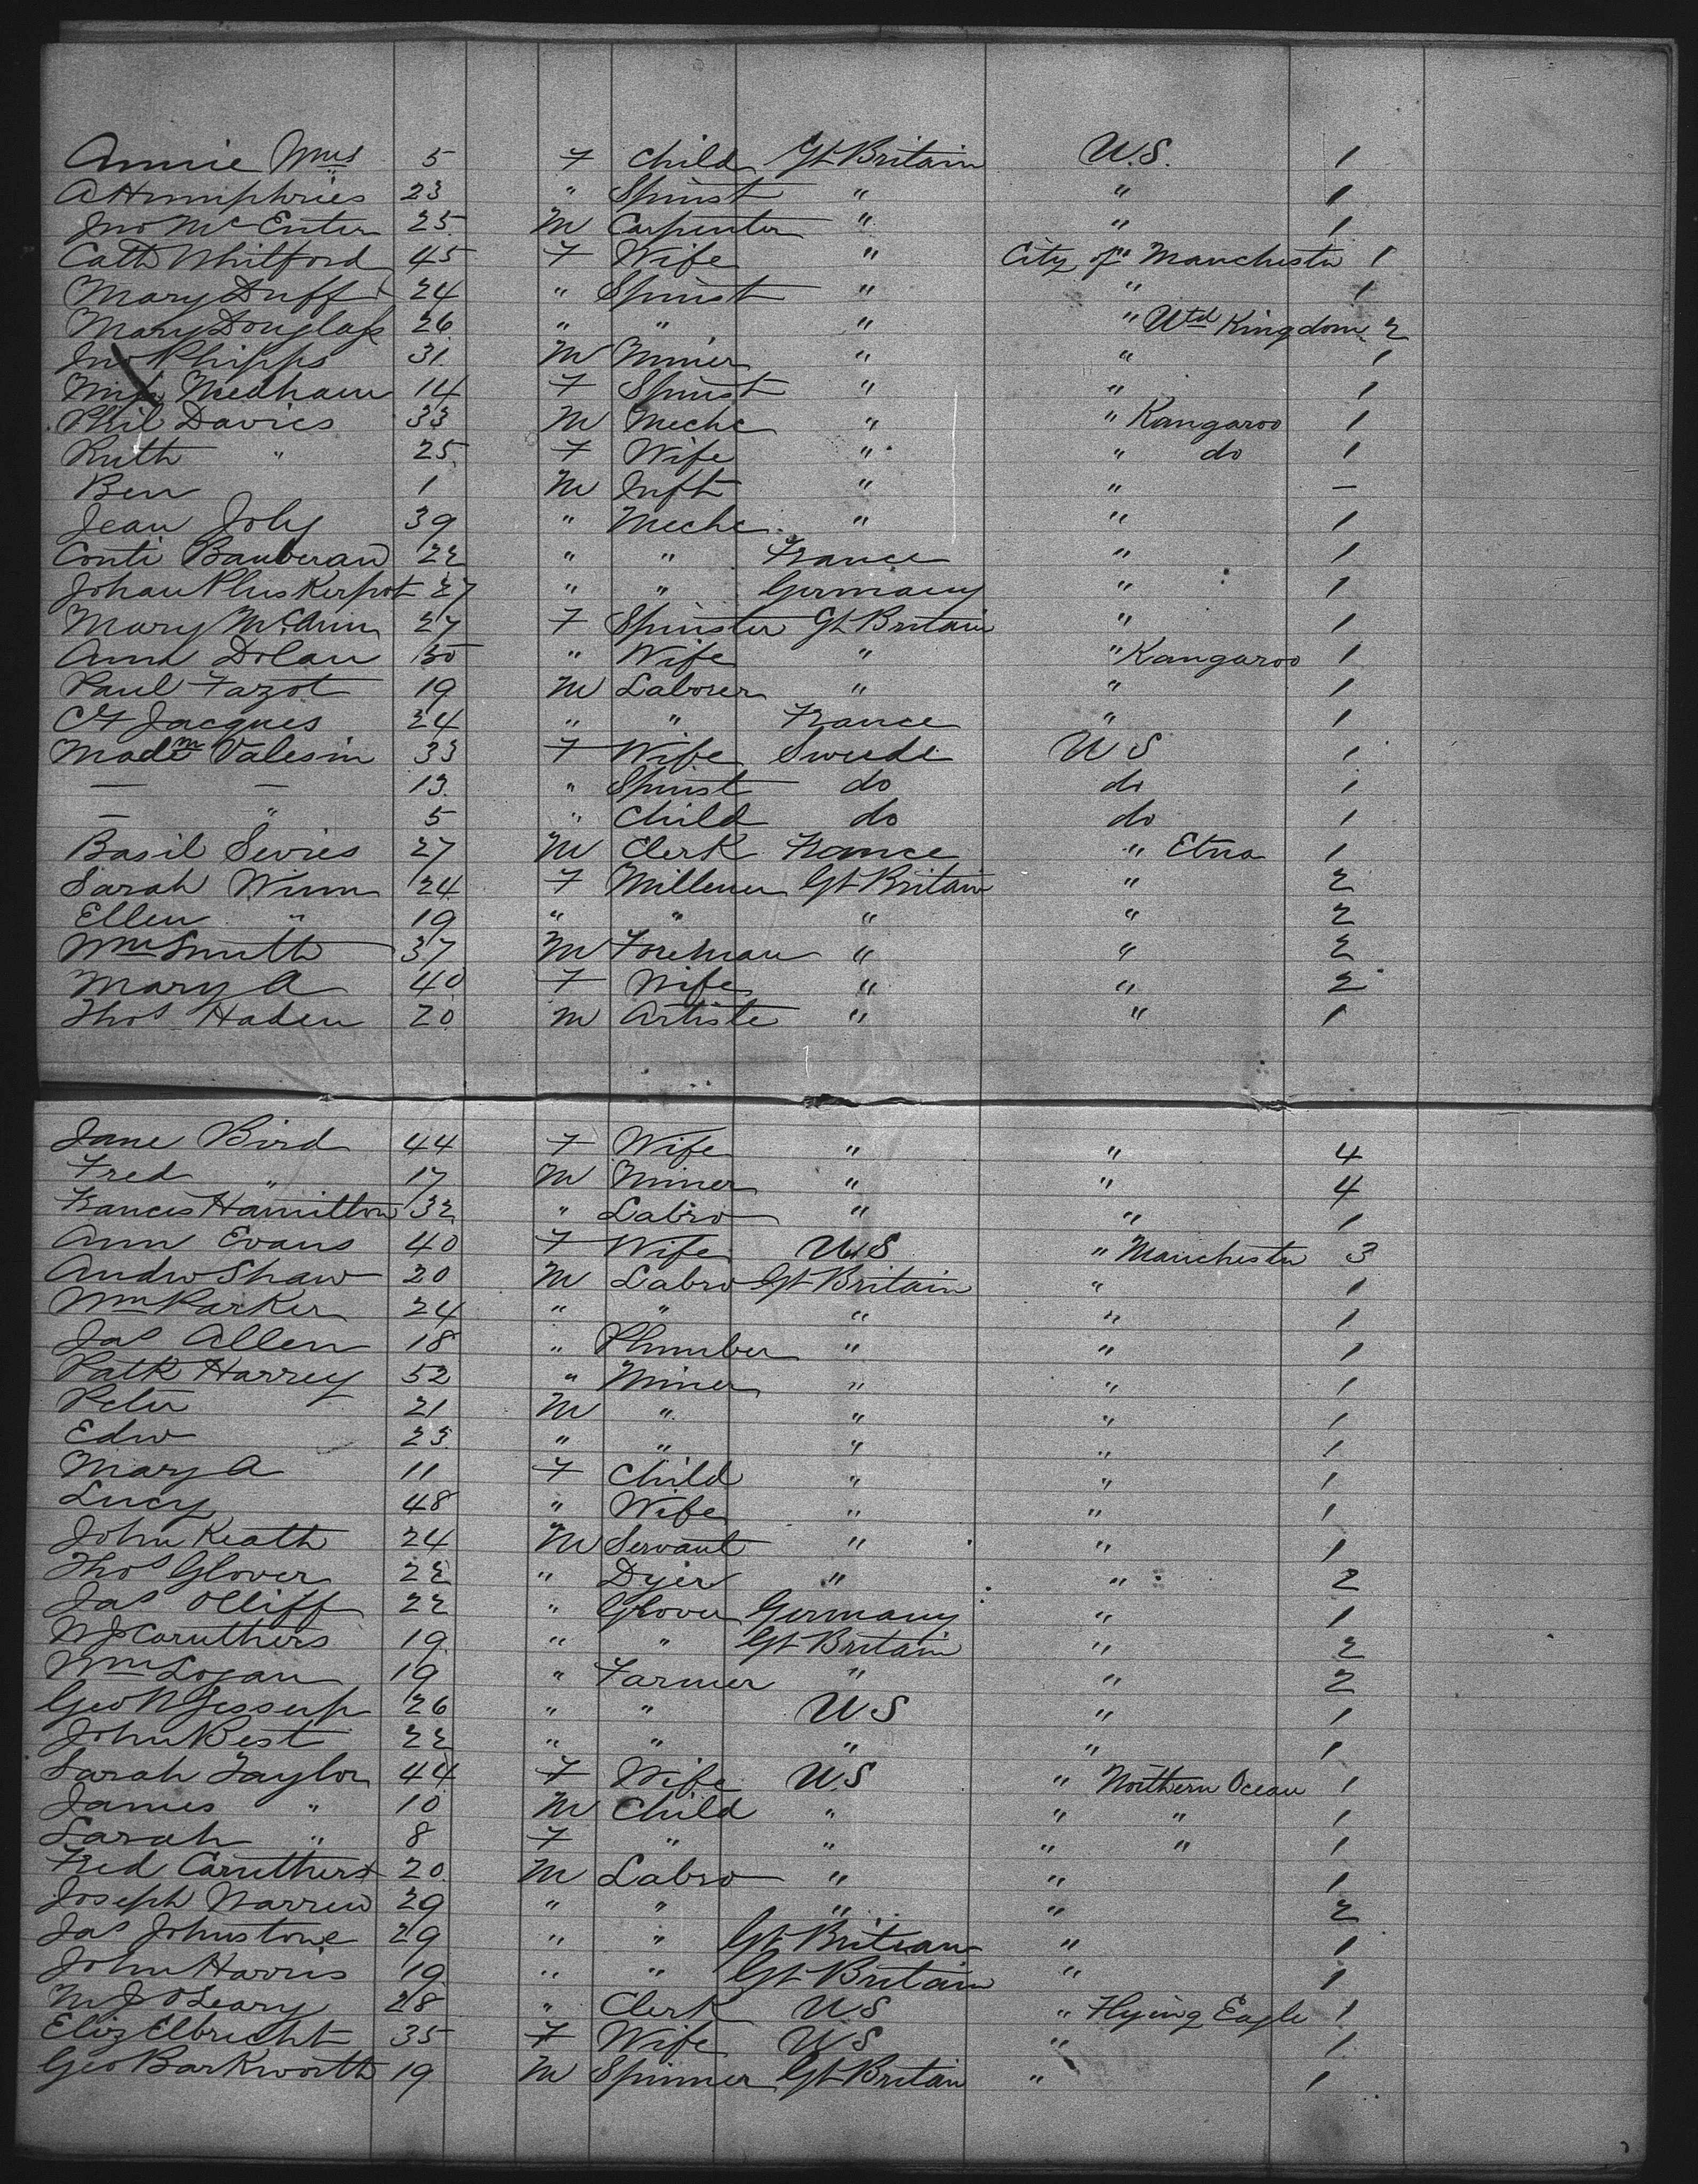 Annie Wms 5 F Child Gt Britain U.S. 1
A Humphries 23 " Spinst " " 1
Jno McEnter 25 M Carpenter " " 1
Cath Whitford 45 F Wife " City of Manchester 1
Mary Duff 24 " Spinst " " 1
Mary Douglass 26 " " " " Utd Kingdom 2
Jno Phipps 31 M Miner " " 1
Miss Medham 14 F Spinst " " 1
Phil Davies 33 M Mechc " " Kangaroo 1
Ruth " 25 F Wife " " do 1
Ben 1 M Inft " " —
Jean Joly 39 " Mechc " " 1
Conti 22 " " France " 1
Johan 27 " " Germany " 1
Mary 27 F Spinster Gt Britain " 1
Ann Dolan 50 " Wife " " Kangaroo 1
Paul Fazot 19 M Laborer " " 1
Jacques 24 " " France " 1
Madme Valesin 33 F Wife Swede U S 1
— — 13 " Spinst do do 1
— " 5 " Child do do 1
Basil Sevies 27 M Clerk France " Etna 1
Sarah Winn 24 F Millener Gt Britain " 2
Ellen " 19 " " " " 2
Wm Smith 37 M Foreman " " 2
Mary A 40 F Wife " " 2
Thos Haden 20 M Artiste " " 1
Jane Bird 44 F Wife " " 4
Fred " 17 M Miner " " 4
Frances Hamilton 32 " Labro " " 1
Ann Evans 40 F Wife U.S " Manchester 3
Andw Shaw 20 M Labro Gt Britain " 1
Wm Parker 24 " " " " 1
Jas Allen 18 " Plumber " " 1
Patk Harrey 52 " Miner " " 1
Peter 21 M " " " 1
Edw 23 " " " " 1
Mary A 11 F Child " " 1
Lucy 48 " Wife " " 1
John Keath 24 M Servant " " 1
Thos Glover 22 " Dyer " " 2
Jas Olliff 22 " Glover Germany " 1
W J Caruthers 19 " " Gt Britain " 2
Wm Logan 19 " Farmer " " 2
Geo N Jessup 26 " " U S " 1
John Best 22 " " " " 1
Sarah Taylor 44 F Wife U.S " Northern Ocean 1
James " 10 M Child " " " 1
Sarah " 8 F " " " " 1
Fred Caruthers 20 M Labro " " 1
Joseph Warren 29 " " " " 2
Jas Johnstone 29 " " Gt Britian " 1
John Harris 19 " " Gt Britain " 1
M J OLeary 28 " Clerk U S " Flying Eagle 1
Eliz Elbrecht 35 F Wife U S " 1
Geo Barkworth 19 M Spinner Gt Britain " 1